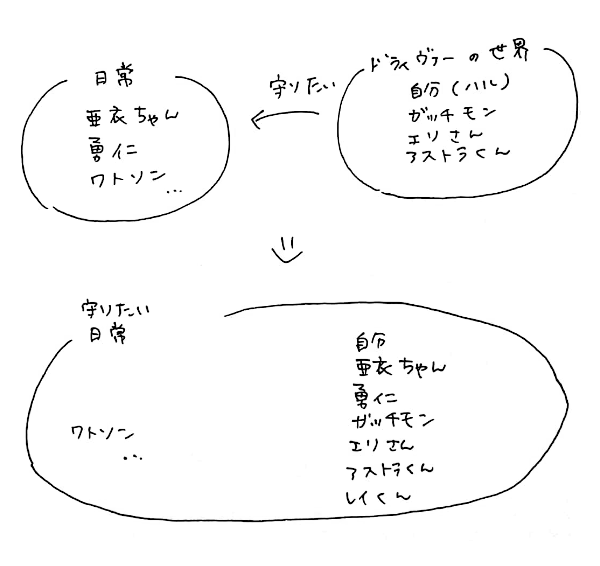 日常
亜衣ちゃん
勇仁
ワトソン
...
守りたい
ドライヴァーの世界
自分(ハル)
ガッチモン
エリさん
アストラくん
守りたい
日常
ワトソン
...
自分
亜衣ちゃん
勇仁
ガッチモン
エリさん
アストラくん
レイくん